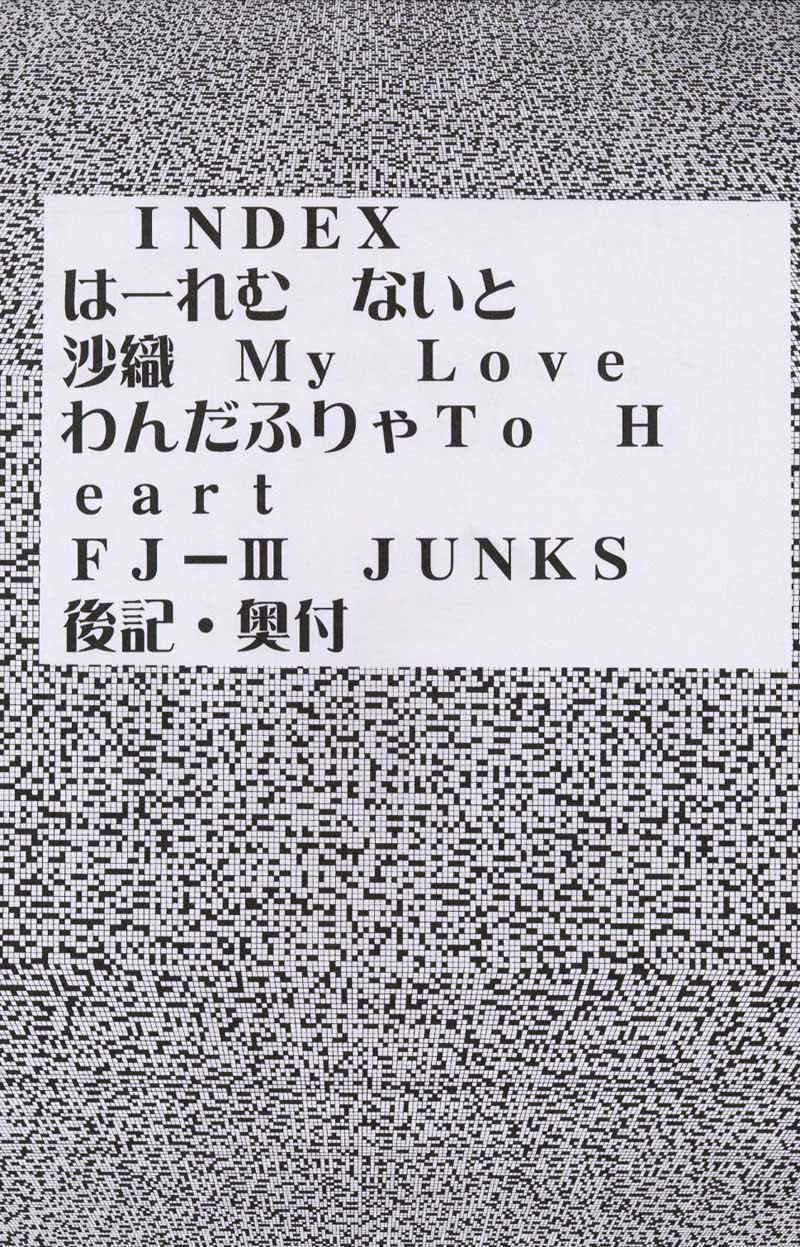 INDEX
はーれむ　ないと
沙織　Ｍｙ　Ｌｏｖｅ
わんだふりゃＴｏ　Ｈ
ｅａｒｔ
ＦＪ－Ⅲ　ＪＵＮＫＳ
後記・奥付